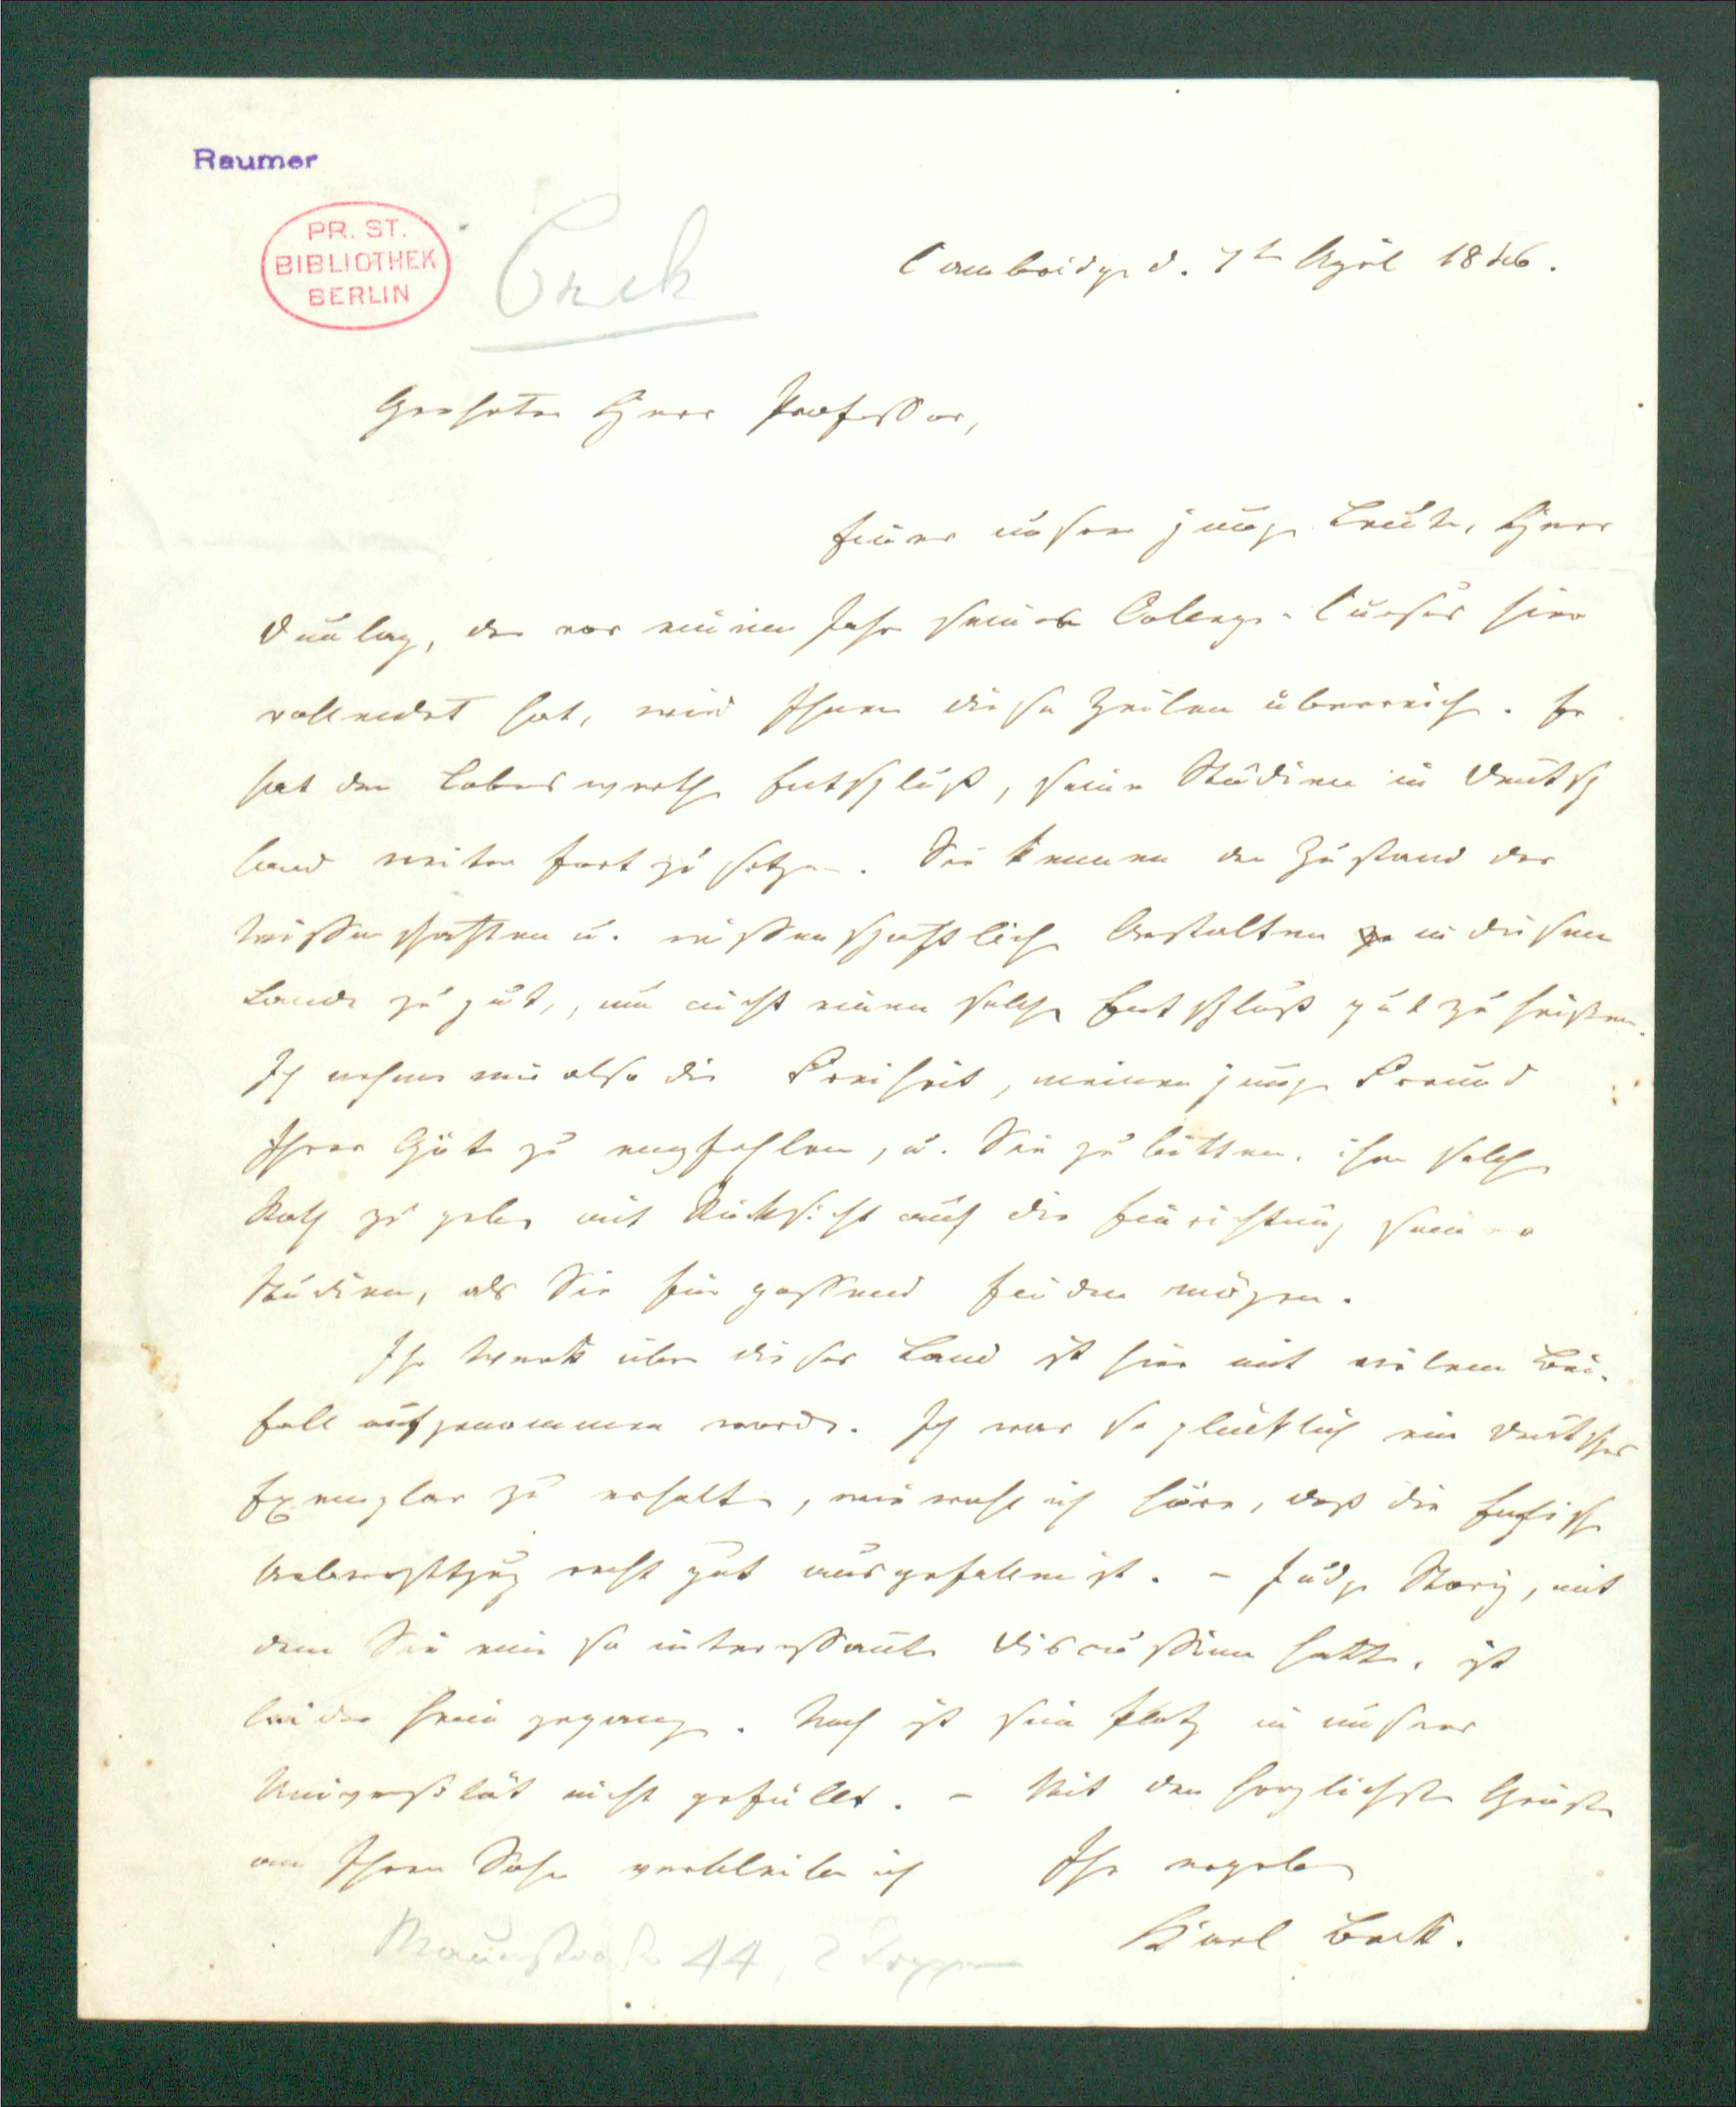 Raumer
PR. ST.
BIBLIOTHEK
BERLIN
Beck
Cambridge d. 7t April 1846.
Geehrter Herr Professor,
Einer unserer junge Leute, Herr
Dunlap, der vor einem Jahre seinen College-Cursus hier
vollendet hat, wird Ihnen diese Zeilen überreichen. Er
hat den Lobenswerthen Entschluß, seine Studien in Deutsch
land weiter fort zu setzen. Sie kennen den Zustand der
Wissenschaften u. wissenschaftlichen Anstalten in diesem
Lande zu gut, um nicht einen solchen Entschluß gut zu heißen.
Ich nehme mir also die Freiheit, meinen jungen Freund
Ihrer Güte zu empfehlen, u. Sie zu bitten, ihm solchen
Rath zu geben mit Rücksicht auf die Einrichtung seiner
Studien, als Sie für passend finden mögen.
Ihr Werk über dieses Land ist hier mit vielem Bei-
fall aufgenommen worden. Ich war so glücklich ein deutsches
Exemplar zu erhalten, wiewohl ich höre, daß die Englische
Uebersetzung recht gut ausgefallen ist. – Judge Story, mit
dem Sie eine so interessante Discussion hatten, ist
leider heim gegangen. Noch ist sein Platz in unserer
Universität nicht gefüllt. – Mit den herzlichsten Grüßen
an Ihren Sohn verbleibe ich Ihr ergebener
Karl Beck.
Mauerstraße 44, 2 Treppen